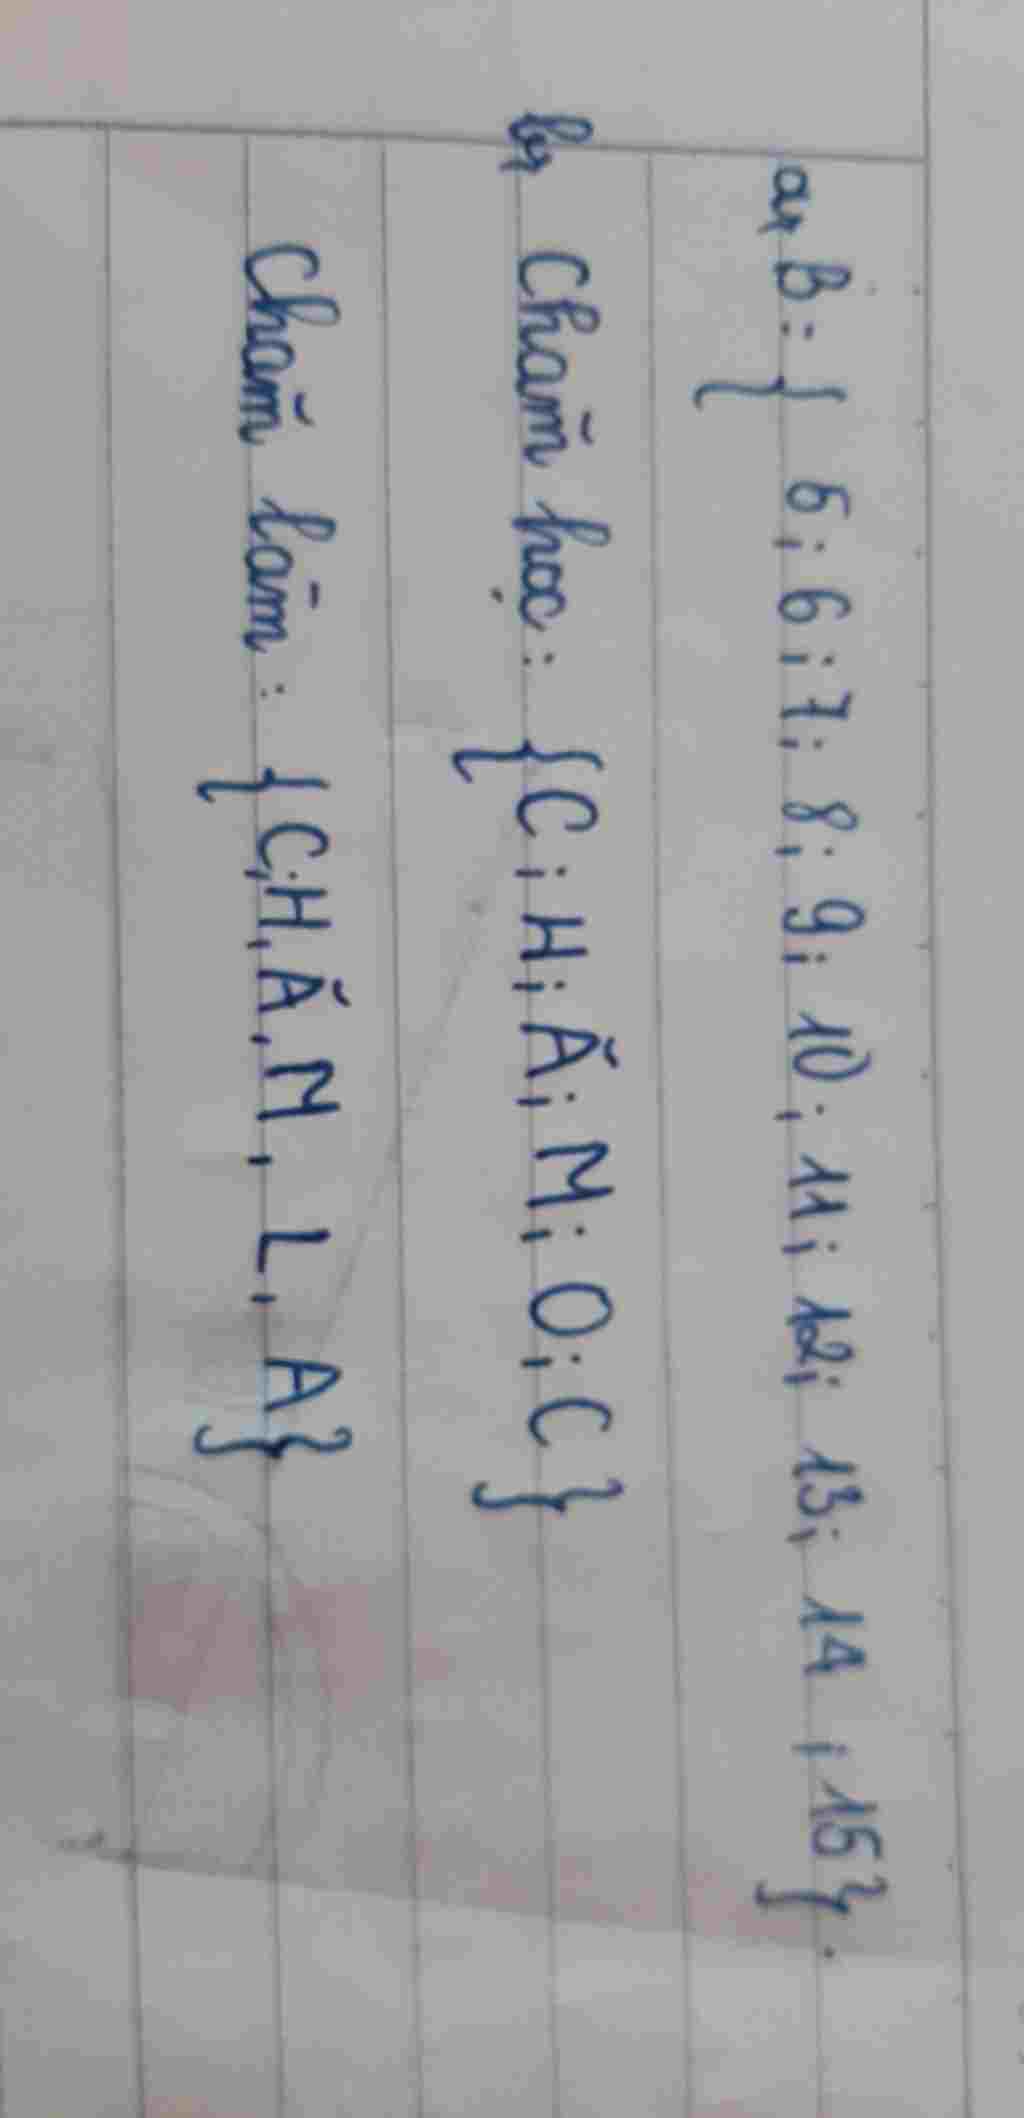 a, B : { 5 ; 6 ; 7 ; 8 ; 9 ; 10 ; 11 ; 12 ; 13 ; 14 ; 15 } .
b, Chăm học : { C ; H ; Ă ; M ; O ; C }
Chăm làm : { C, H, Ă, M, L, A }